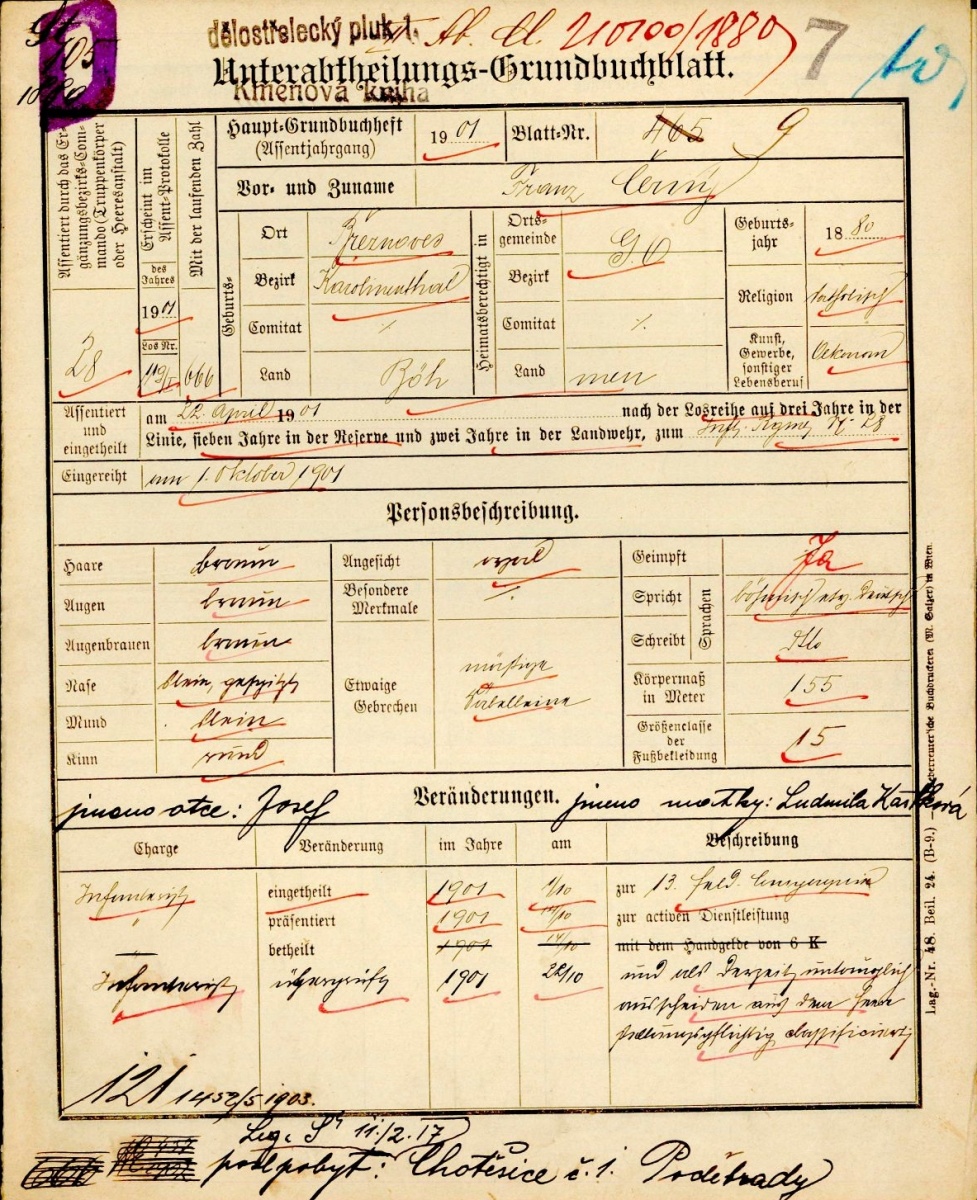 dělostřelecký pluk 1.
Unterabtheilungs-Grundbuchblatt.
Kmenová kniha
7
105
Haupt-Grundbuchheft
(Assentjahrgang)
1901
Blatt-Nr.
465 9
Assentiert durch das Er-
gänzungsbezirks-Com-
mando (Truppenkörper
oder Heeresanstalt)
28
Erscheint im
Assent-Protokolle
des
Jahres
1901
Los Nr.
Mit der laufenden Zahl
666
Vor- und Zuname
Franz Černý
Geburts-
Ort
Bezirk Karolinenthal
Comitat ⁒
Land Böh
Heimatsberechtigt in
Orts-
gemeinde
Bezirk
Comitat ⁒
Land men
Geburts-
jahr
1880
Religion katholisch
Kunst,
Gewerbe,
sonstiger
Lebensberuf
Oekonom
Assentiert
und
eingetheilt
am 22. April 1901 nach der Losreihe auf drei Jahre in der
Linie, sieben Jahre in der Reserve und zwei Jahre in der Landwehr, zum Inft. Regmt Nr. 28
Eingereiht am 1. Oktober 1901
Personsbeschreibung.
Haare braun
Augen braun
Augenbrauen braun
Nase klein, gespitzt
Mund klein
Kinn rund
Angesicht oval
Besondere
Merkmale
⁒
Etwaige
Gebrechen
mäßige
Säbelbeine
Geimpft Ja
Spricht
Schreibt
Sprachen
böhmisch etw. deutsch
dtto
Körpermaß
in Meter
155
Größenclasse
der
Fußbekleidung
15
Veränderungen.
jmeno otce: Josef
jmeno matky: Ludmila
Charge Veränderung im Jahre am Beschreibung
Infanterist eingetheilt 1901 1/10 zur 13. Feld Compagnie
" präsentiert 1901 zur activen Dienstleistung
betheilt 1901 mit dem Handgelde von 6 K
Infanterist überprüft 1901 22/10 und als derzeit untauglich
ausscheiden aus dem Heere
stellungspflichtig classificiert
121 1452/5 1903.
podpobyt: Chotěšice č. 1. Poděbrady
Lag.-Nr. 48. Beil. 24. (B-9.)